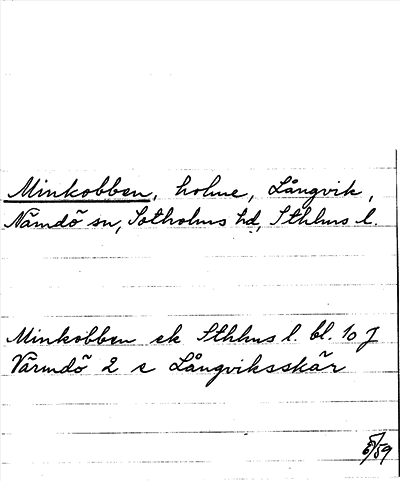 Minkobben, holme, Långvik,
Nämdö sn, Sotholms hd, Sthlms l.
Minkobben ek Sthlms l. bl. 10 J
Värmdö 2 s Långviksskär
5/59